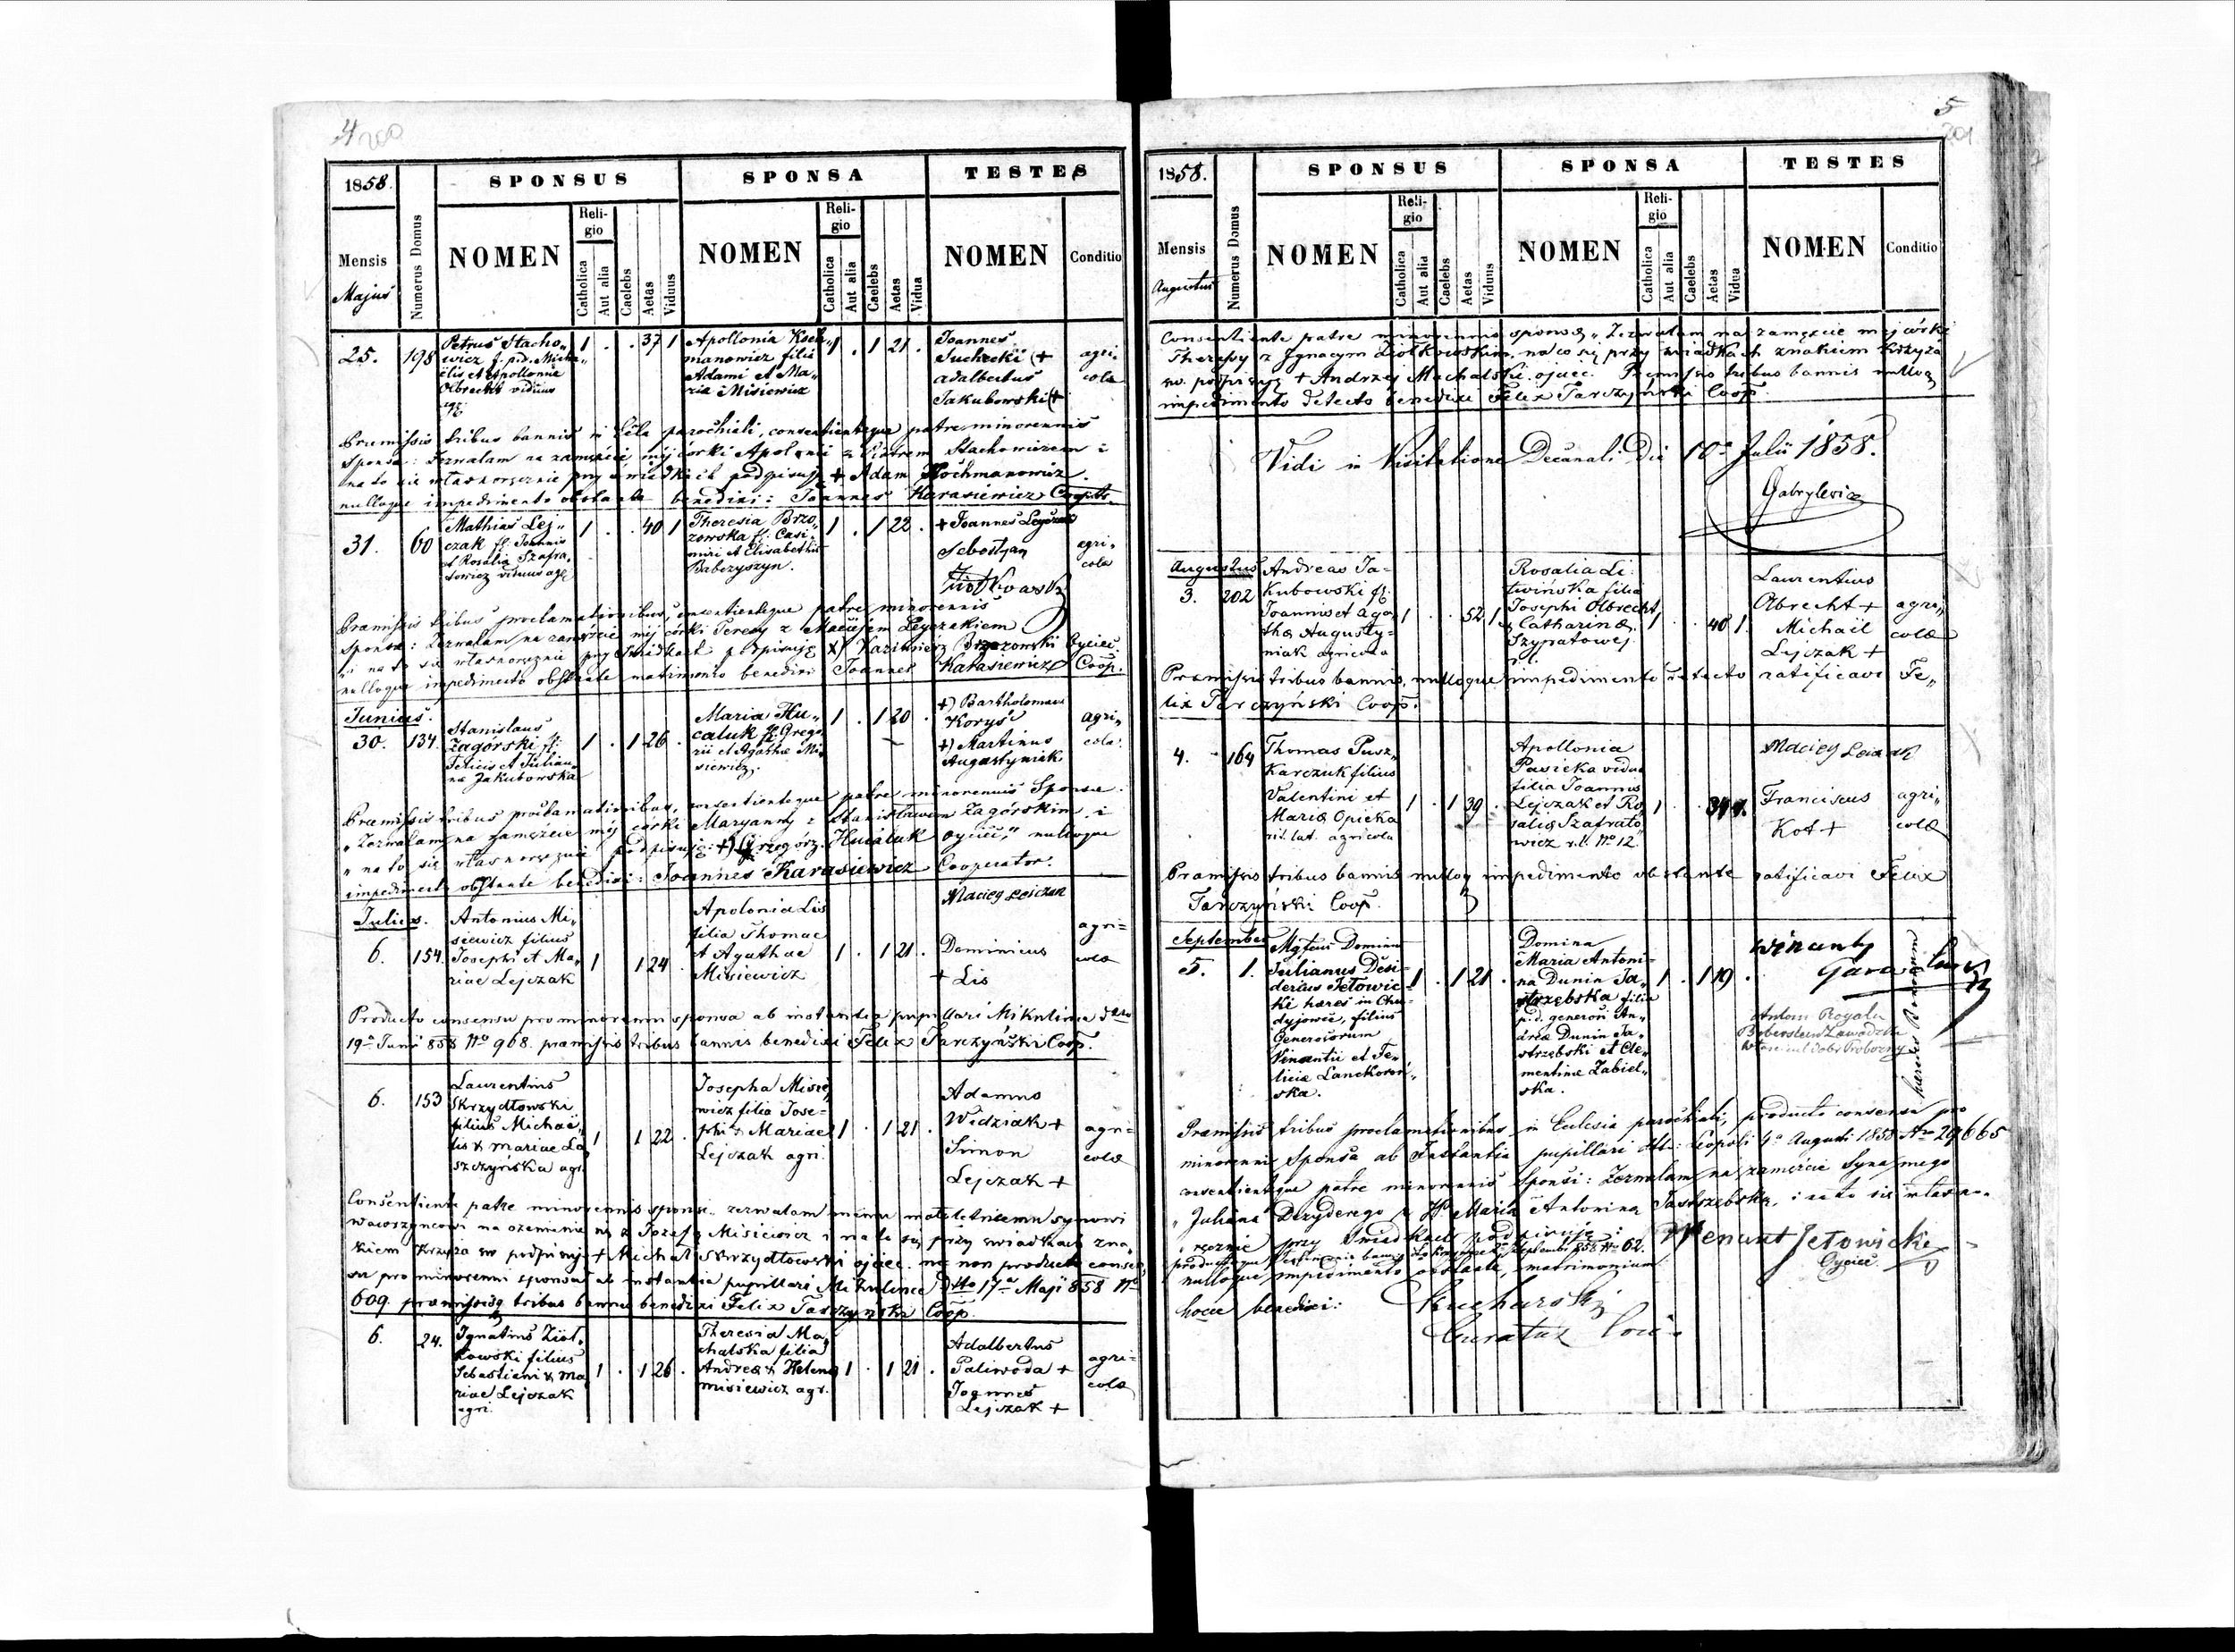 4
1858.
SPONSUS
SPONSA
TESTES
Mensis
Majus
Numerus Domus
NOMEN
Religio
Catholica
Aut alia
Caelebs
Aetas
Viduus
NOMEN
Religio
Catholica
Aut alia
Caelebs
Aetas
Vidua
NOMEN
Conditio
25.
198
Petrus Stacho„
wicz f. p.d. Micha„
elis et Apollonia
Olbrecht viduus
agr.
1 . . 37 1
Apollonia Koch„
manowicz filia
Adami et Ma„
ria Misiewicz
1 . 1 21 .
Joannes
Suchecki (+
Adalbertus
Jakubowski (+
agri
cola
Præmissis tribus bannis in Ecla parochiali, consentienteque patre minorennis
Sponsæ: Zezwalam na zamęście mej córki Apolonii z Piotrem Stachowiczem i
na to się własnoręcznie przy świadkach podpisuję + Adam Kochmanowicz.
nulloque impedimento obstante benedixi: Joannes Karasiewicz Coop.
31.
60
Mathias Lej„
czak fl. Joannis
et Rosalia Szafra„
towicz viduus agr.
1 . . 40 1
Theresia Brzo„
zowska fl. Casi„
miri et Elisabethæ
Babczyszyn.
1 . 1 22 .
+ Joannes Lejczak
Sebastjan
Ziołkowski
agri„
cola
Præmissis tribus proclamationibus, consentienteque patre minorennis
Sponsæ: Zezwalam na zamęście mej córki Teresy z Maciejem Lejczakiem
i na to się własnoręcznie przy świadkach podpisuję X) Kazimierz Brzozowski Oyciec.
nulloque impedimento obstante matrimonio benedixi Joannes Karasiewicz Coop.
Junius.
30.
134.
Stanislaus
Zagórski fl.
Felicis et Julian„
na Jakubowska
1 . 1 26 .
Maria Hu„
caluk fl. Grego„
rii et Agatha Mi„
siewicz.
1 . 1 20 .
+) Bartholomæus
Koryś
+) Martinus
Augustyniak
agri„
cola.
Præmissis tribus proclamationibus, consentienteque patre minorennis Sponsæ.
„Zezwalam na zamęście mej córki Maryanny z Stanisławem Zagórskim i
„na to się własnoręcznie podpisuję: +) Grzegórz Hucaluk oyciec," nulloque
impedimento obstante benedixi: Joannes Karasiewicz Cooperator.
Julius.
6.
154.
Antonius Mi„
siewicz filius
Josephi et Ma„
riae Lejczak
1 1 24 .
Apolonia Lis
filia Thomae
et Agathae
Misiewicz
1 . 1 21 .
Maciey Leiczak
Dominicus
+ Lis
agri=
cola
Producto consensu pro minorenni sponsa ab instantia pupillari Mikulince dtto
19a Juni 858 No 968. præmissis tribus bannis benedixi Felix Tarczyński Coop.
6.
153
Laurentius
Skrzydłowski
filius Michae„
lis & Mariae La
szczyńska agr.
1 1 22 .
Josepha Misie„
wicz filia Jose=
phi & Mariae
Lejczak agri.
1 . 1 21 .
Adamus
Widziak +
Simon
Lejczak +
agri=
colæ
Consentiente patre minorennis sponsi. zezwalam memu małoletniemu synowi
Wawrzyńcowi na ożenienie się z Józefą Misiewicz i na to się przy świadkach zna„
kiem Krzyża św podpisuję + Michał Skrzydłowski ojciec. nec non producto consen
su pro minorenni sponsa ab instantia pupillari Mikulince dtto 17a Maji 858 No
609. præmissisq tribus bannis benedixi Felix Tarczyński Coop.
6.
24.
Ignatius Ziół„
kowski filius
Sebastiani & Ma
riae Lejczak
agri.
1 . 1 26 .
Theresia Ma„
chalska filia
Andreæ & Helena
Misiewicz agr.
1 . 1 21 .
Adalbertus
Paliwoda +
Joannes
Lejczak +
agri=
colæ
5
201
1858.
SPONSUS
SPONSA
TESTES
Mensis
Augustus
Numerus Domus
NOMEN
Religio
Catholica
Aut alia
Caelebs
Aetas
Viduus
NOMEN
Religio
Catholica
Aut alia
Caelebs
Aetas
Vidua
NOMEN
Conditio
Consentiente patre minorennis sponsæ „Zezwalam na zamęzcie mej córki
Theresy z Ignacym Ziółkowskim, na co się przy świadkach znakiem Krzyża
św. podpisuję + Andrzej Machalski ojciec. Præmissis tribus bannis nulloq
impedimento detecto benedixi Felix Tarczyński Coop.
Vidi in Visitatione Decanali Die 10a Julii 1858.
Gabrylewicz
Augustus
3.
202
Andreas Ja=
kubowski fl.
Joannis et Aga„
thæ Augusty=
niak agricola
1 . . 52 1
Rosalia Li„
twińska filia
Josephi Olbrecht
& Catharinæ
Szypatowej
1 . . 40 1.
Laurentius
Olbrecht +
Michaël
Lejczak +
agri„
colæ
Præmissis tribus bannis, nulloque impedimento detecto ratificavi Fe„
lix Tarczyński Coop.
4.
164
Thomas Pusz„
Karczuk filius
Valentini et
Mariæ Opieka
rit. lat. agricola
1 . 1 39 .
Apollonia
Pasieka vidua
filia Joannis
Lejczak et Ro„
saliæ Szafrato„
wicz r.l. No 12.
1 . . 34 1.
Maciey Leiczak
Franciscus
Kot +
agri„
colæ
Præmissis tribus bannis nulloq impedimento obstante ratificavi Felix
Tarczyński Coop.
September
5.
1.
Mgfcus Dominus
Julianus Desi=
derius Jełowic=
ki hæres in Chu=
dyjowce, filius
Generosorum
Venantii et Fe„
liciæ Lanckoroń„
ska.
1 . 1 21 .
Domina
Maria Antoni=
na Dunin Ja„
strzębska filia
p.d. generosi An„
dreæ Dunin Ja„
strzębski et Cle„
mentinæ Zabiel„
ska.
1 . 1 19 .
Winanty
Antoni Rogala
Zawadzki
Præmissis tribus proclamationibus in Ecclesia parochiali, producto consensu pro
minorenni Sponsa ab Instantia pupillari dtt: Leopoli 4a Augusti 1858 Nro 29665
consentienteque patre minorennis Sponsi: Zezwalam na zamęzcie Syna mego
„Juliana Dezyderego z W Maria Antonina Jastrzębska, i na to się własno„
„ręcznie przy świadkach podpisuję:
Wenant Jełowicki
Oyciec
nulloque impedimento obstante, matrimonium
hocce benedixi:
Kucharski
Curatus loci